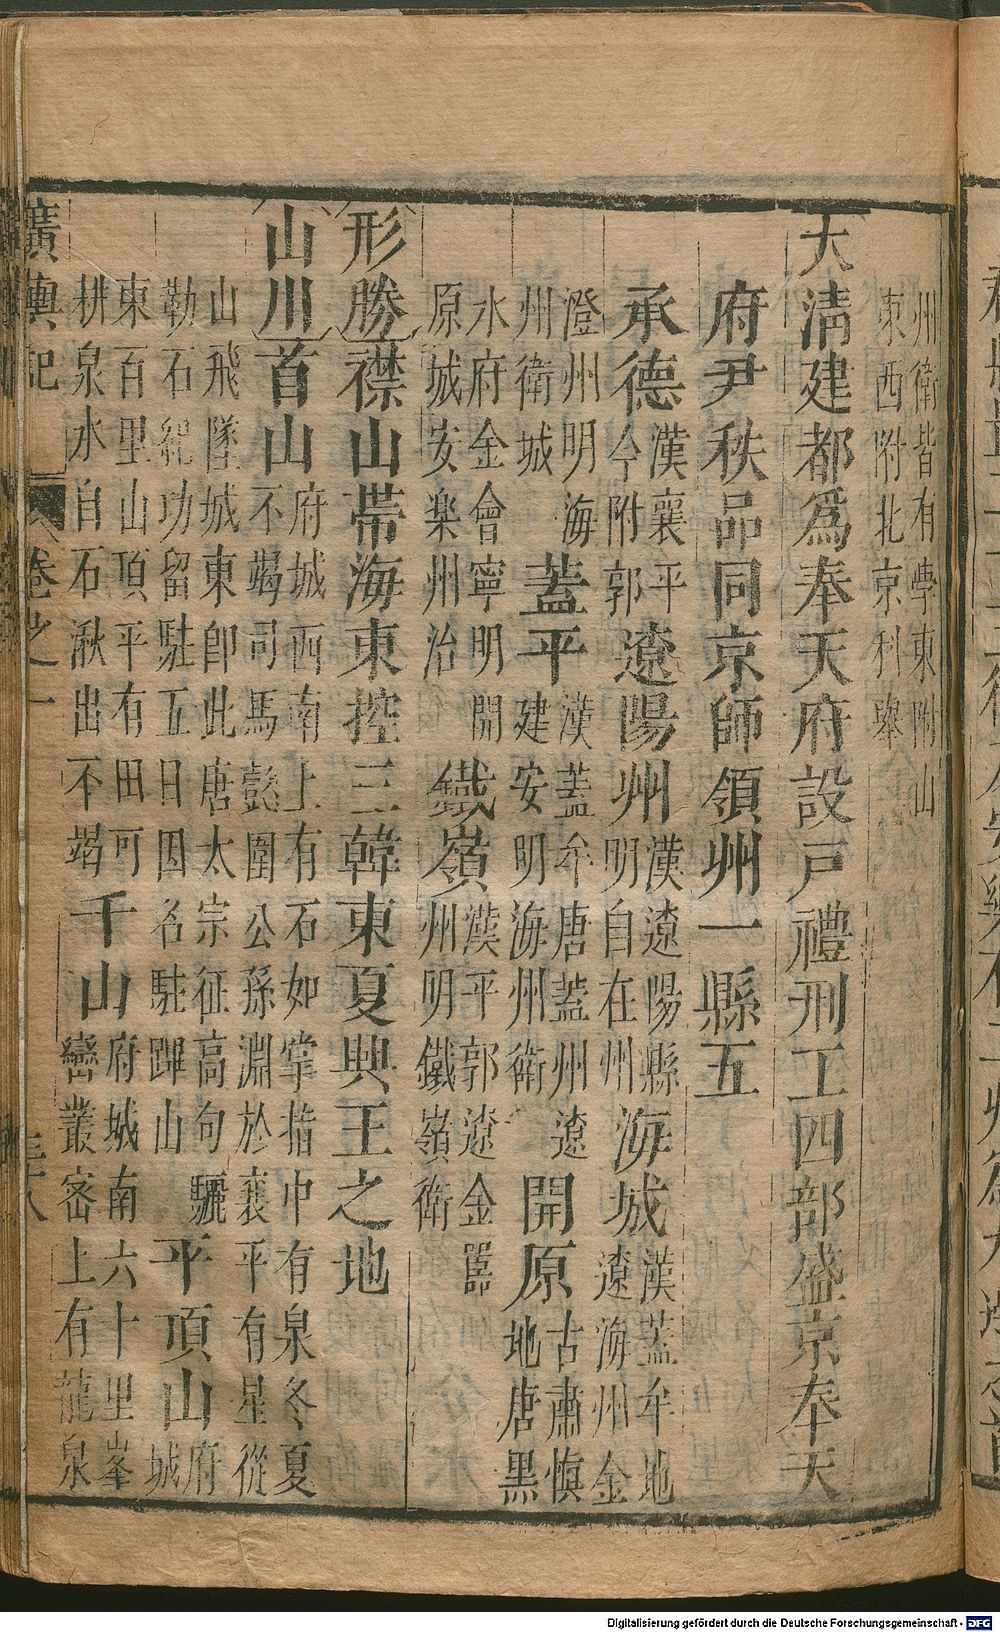 州衛皆有學東附山
東西附北京利舉
大清建都爲奉天府設戸禮刑工四部盛京奉天
府尹秩品同京師領州一縣五
承德漢襄平今附郭遼陽州漢遼陽縣明自在州海城漢蓋牟地遼海州金
澄州明海州衛城蓋平漢蓋牟唐蓋州遼建安明海州衛開原古肅愼地唐黑
水府金會寧明開原城安楽州治鐵嶺漢平郭遼金嚚州明鐵嶺衛
形勝襟山帶海東控三韓東夏興王之地
山川首山府城西南上有石如掌指中有泉冬夏不竭司馬懿圍公孫淵於襄平有星從
山飛墜城東卽此唐太宗征高句驪勒石紀功留駐五日因名駐蹕山平頂山府城
東百里山頂平有田可耕泉水自石湫出不竭千山府城南六十里峯巒叢密上有龍泉
廣輿記 卷之一
Digitalisierung gefördert durch die Deutsche Forschungsgemeinschaft - DFG